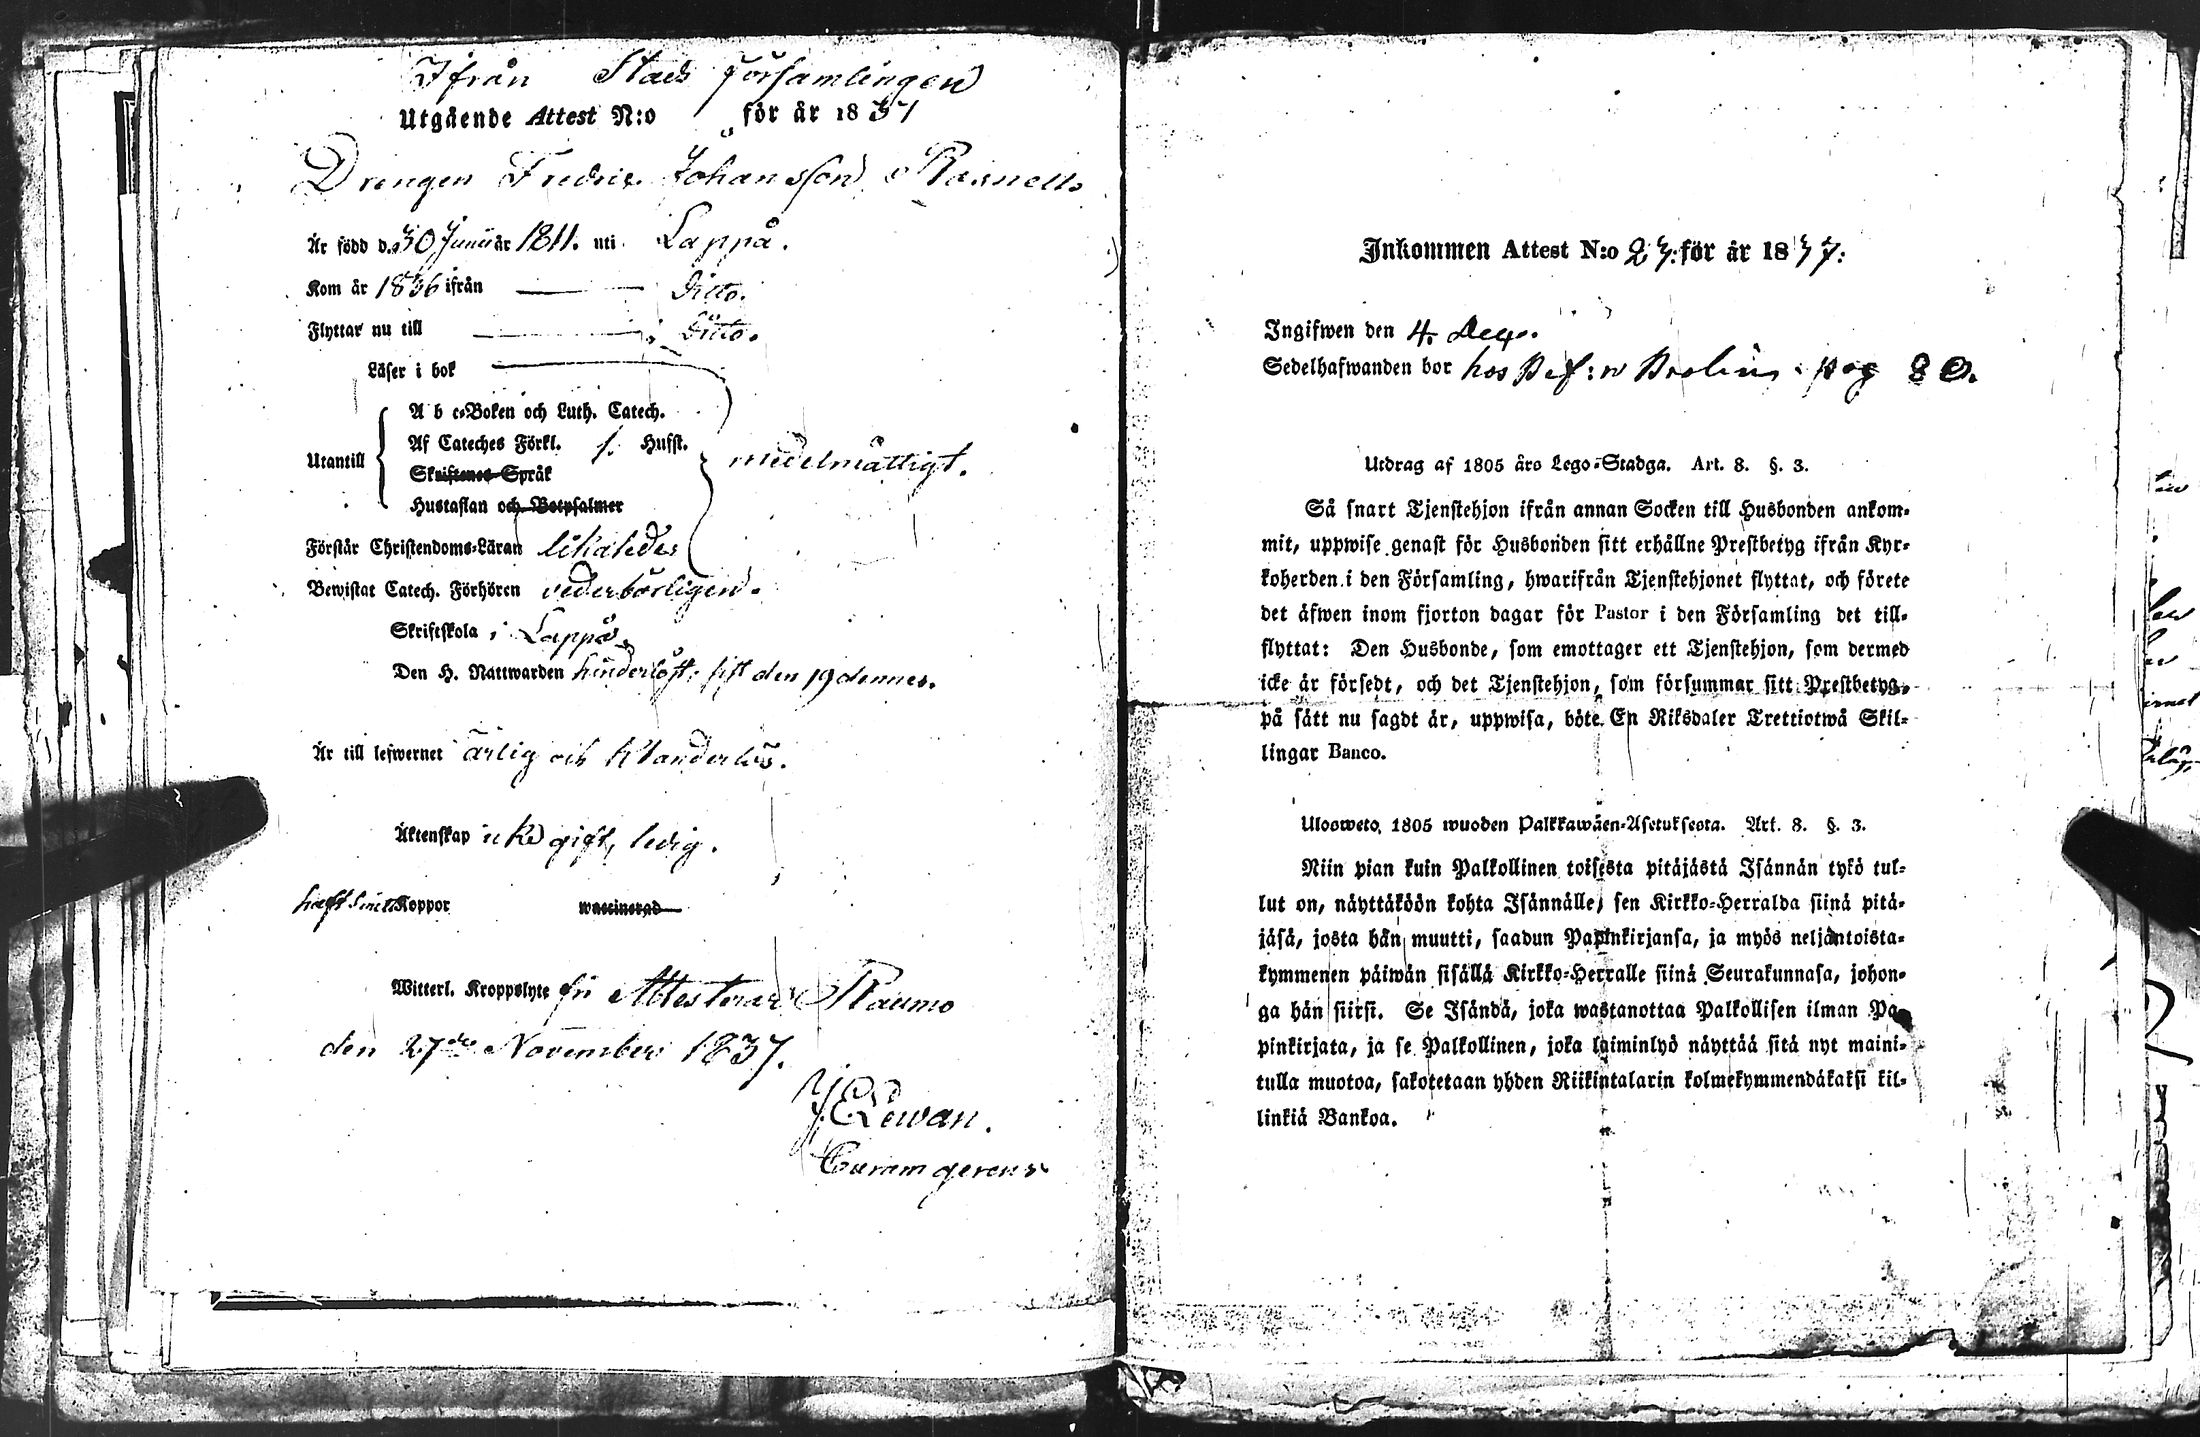 Ifrån Stads församlingen
Utgående Attest N:o för år 1837
Drengen Fredric Johansson
Är född d. 30 Junii år 1811. uti Lappå.
Kom år 1836 ifrån Ditto.
Flyttar nu till Ditto.
Läser i bok
A b c-Boken och Luth. Catech.
Af Cateches Förkl. Husst.
Utantill medelmåttigt.
Skriftenes Språk
Hustaflan och Botpsalmer
Förstår Christendoms-Läran likaledes
Bewistat Catech. Förhören vederbörligen.
Skriftskola i Lappå.
Den H. Nattwarden hinderlöst, sist den 19 dennes.
Är till lefwernet ärlig och klanderlös.
Äktenskap icke gift, ledig.
haft Smitt Koppor waccinerad
Witterl. Kroppslyte fri Attesterar Raumo
den 27de November 1837.
Lewan.
Curam gerens
Inkommen Attest N:o 23: för år 1837:
Ingifwen den 4. Dec.
Sedelhafwanden bor hos pag 80.
Utdrag af 1805 års Lego-Stadga. Art. 8. §. 3.
Så snart Tjenstehjon ifrån annan Socken till Husbonden ankom-
mit, uppwise genast för Husbonden sitt erhållne Prestbetyg ifrån Kyr-
koherden i den Församling, hwarifrån Tjenstehjonet flyttat, och förete
det äfwen inom fjorton dagar för Pastor i den Församling det till-
flyttat: Den Husbonde, som emottager ett Tjenstehjon, som dermed
icke är försedt, och det Tjenstehjon, som försummar sitt Prestbetyg,
på sätt nu sagdt är, uppwisa, böte En Riksdaler Trettiotwå Skil-
lingar Banco.
Ulosweto, 1805 wuoden Palkkawäen-Asetuksesta. Art. 8. §. 3.
Niin pian kuin Palkollinen toisesta pitäjästä Isännän tykö tul-
lut on, näyttäköön kohta Isännälle, sen Kirkko-Herralda siinä pitä-
jäsä, josta hän muutti, saadun Papinkirjansa, ja myös neljäntoista-
kymmenen päiwän sisällä Kirkko-Herralle siinä Seurakunnasa, johon-
ga hän siirsi. Se Isändä, joka wastanottaa Palkollisen ilman Pa-
pinkirjata, ja se Palkollinen, joka laiminlyö näyttää sitä nyt maini-
tulla muotoa, sakotetaan yhden Riikintalarin kolmekymmendäkaksi kil-
linkiä Bankoa.